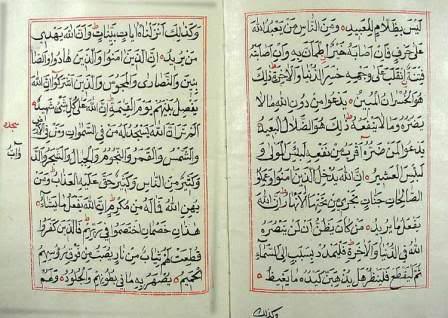 لَيْسَ بِظَلَّامٍ لِلْعَبِيدِ وَمِنَ النَّاسِ مَنْ يَعْبُدُ اللهَ
عَلَى حَرْفٍ فَإِنْ أَصَابَهُ خَيْرٌ اطْمَأَنَّ بِهِ وَإِنْ أَصَابَتْهُ
فِتْنَةٌ انْقَلَبَ عَلَى وَجْهِهِ خَسِرَ الدُّنْيَا وَالْآخِرَةَ ذَلِكَ
هُوَ الْخُسْرَانُ الْمُبِينُ يَدْعُوا مِنْ دُونِ اللهِ مَا لَا
يَضُرُّهُ وَمَا لَا يَنْفَعُهُ ذَلِكَ هُوَ الضَّلَالُ الْبَعِيدُ
يَدْعُوا لَمَنْ ضَرُّهُ أَقْرَبُ مِنْ نَفْعِهِ لَبِئْسَ الْمَوْلَى وَ
لَبِئْسَ الْعَشِيرُ إِنَّ اللهَ يُدْخِلُ الَّذِينَ آمَنُوا وَعَمِلُوا
الصَّالِحَاتِ جَنَّاتٍ تَجْرِي مِنْ تَحْتِهَا الْأَنْهَارُ إِنَّ اللهَ
يَفْعَلُ مَا يُرِيدُ مَنْ كَانَ يَظُنُّ أَنْ لَنْ يَنْصُرَهُ
اللهُ فِي الدُّنْيَا وَالْآخِرَةِ فَلْيَمْدُدْ بِسَبَبٍ إِلَى السَّمَاءِ
ثُمَّ لْيَقْطَعْ فَلْيَنْظُرْ هَلْ يُذْهِبَنَّ كَيْدُهُ مَا يَغِيظُ
وَكَذَلِكَ
وَكَذَلِكَ أَنْزَلْنَاهُ آيَاتٍ بَيِّنَاتٍ وَأَنَّ اللهَ يَهْدِي
مَنْ يُرِيدُ إِنَّ الَّذِينَ آمَنُوا وَالَّذِينَ هَادُوا وَالصَّا
بِئِينَ وَالنَّصَارَى وَالْمَجُوسَ وَالَّذِينَ أَشْرَكُوا إِنَّ اللهَ
يَفْصِلُ بَيْنَهُمْ يَوْمَ الْقِيمَةِ إِنَّ اللهَ عَلَى كُلِّ شَيْءٍ شَهِيدٌ
أَلَمْ تَرَ أَنَّ اللهَ يَسْجُدُ لَهُ مَنْ فِي السَّمَوَاتِ وَمَنْ فِي الْأَرْضِ
سجدة
وَالشَّمْسُ وَالْقَمَرُ وَالنُّجُومُ وَالْجِبَالُ وَالشَّجَرُ وَالدَّ
وَآبُّ
وَكَثِيرٌ مِنَ النَّاسِ وَكَثِيرٌ حَقَّ عَلَيْهِ الْعَذَابُ وَمَنْ
يُهِنِ اللهُ فَمَا لَهُ مِنْ مُكْرِمٍ إِنَّ اللهَ يَفْعَلُ مَا يَشَاءُ
هَذَانِ خَصْمَانِ اخْتَصَمُوا فِي رَبِّهِمْ فَالَّذِينَ كَفَرُوا
قُطِّعَتْ لَهُمْ ثِيَابٌ مِنْ نَارٍ يُصَبُّ مِنْ فَوْقِ رُؤُسِهِمُ
الْحَمِيمُ يُصْهَرُ بِهِ مَا فِي بُطُونِهِمْ وَالْجُلُودُ وَلَهُمْ